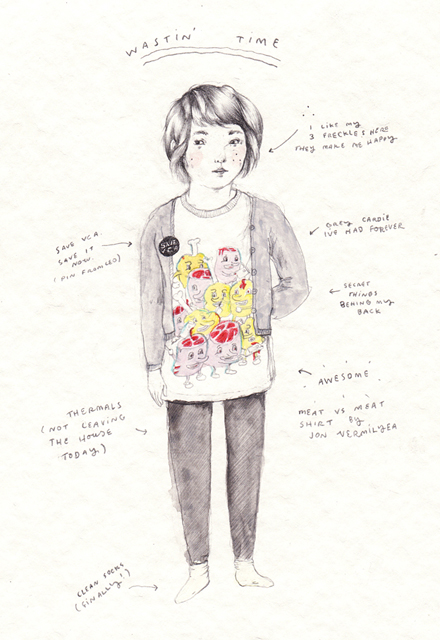 WASTIN' TIME
I LIKE MY
3 FRECKLES HERE
THEY MAKE ME HAPPY
GREY CARDIE
IVE HAD FOREVER
SAVE VCA.
SAVE IT
NOW.
SAVE
VCA
SECRET
THINGS
BEHING MY
BACK
AWESOME
MEAT VS MEAT
SHIRT BY
JON VERMILYEA
THERMALS
(NOT LEAVING
THE HOUSE
TODAY.)
CLEAN SOCKS
(FINALLY!)